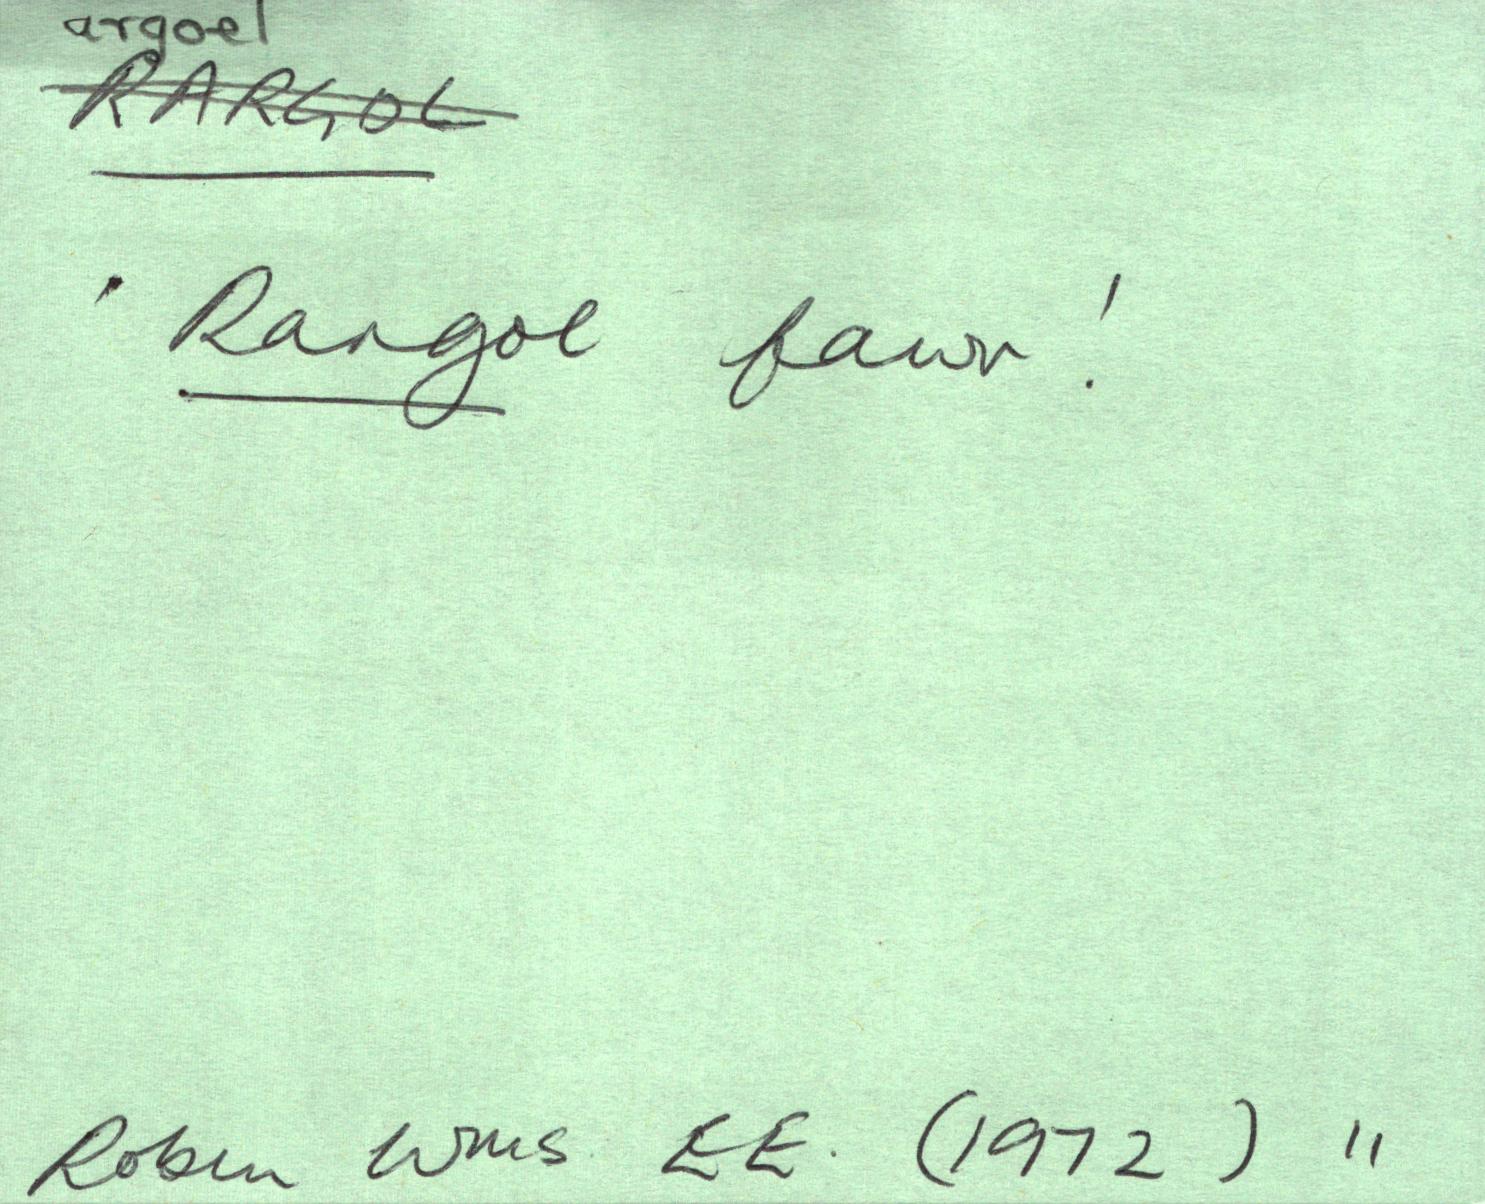 argoel
RARGOL
' Rargol fawr!
Robin Wms. EE. (1972) "